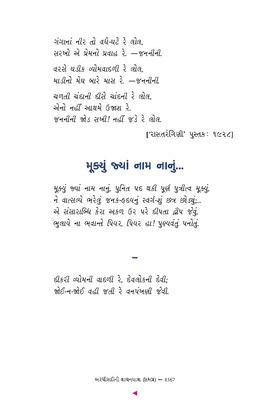 ગંગાનાં નીર તો વધે-ઘટે રે લોલ,
સરખો એ પ્રેમનો પ્રવાહ રે. —જનનીની.
વરસે ઘડીક વ્યોમવાદળી રે લોલ,
માડીનો મેઘ બારે માસ રે. —જનનીની.
ચળતી ચંદાની દીસે ચાંદની રે લોલ,
એનો નહીં આથમે ઉજાસ રે.
જનનીની જોડ સખી! નહીં જડે રે લોલ.
['રાસતરંગિણી' પુસ્તકઃ ૧૯૨૮]
મૂક્યું જ્યાં નામ નાનું...
મૂક્યું જ્યાં નામ નાનું, પુનિત પદ થકી પૂર્ણ પુત્રીત્વ મૂક્યું,
ને વાત્સલ્યે ભરેલું જનક-હૃદયનું સ્વર્ગ-શું છત્ર છોડ્યું;...
એ સંસારાબ્ધિ કેરા અકળ ઉર પરે દીપતા દ્વીપ જેવું,
ભુલાયે ના ભવાન્તે પિયર, પિયર હા! પુણ્યવંતું પનોતું.
–
દીકરી વ્યોમની વાદળી રે, દેવલોકની દેવી;
જોઈ-ન-જોઈ વહી જતી રે વનપંખણી જેવી.
અરધીસદીની વાચનયાત્રા — 1367
◄